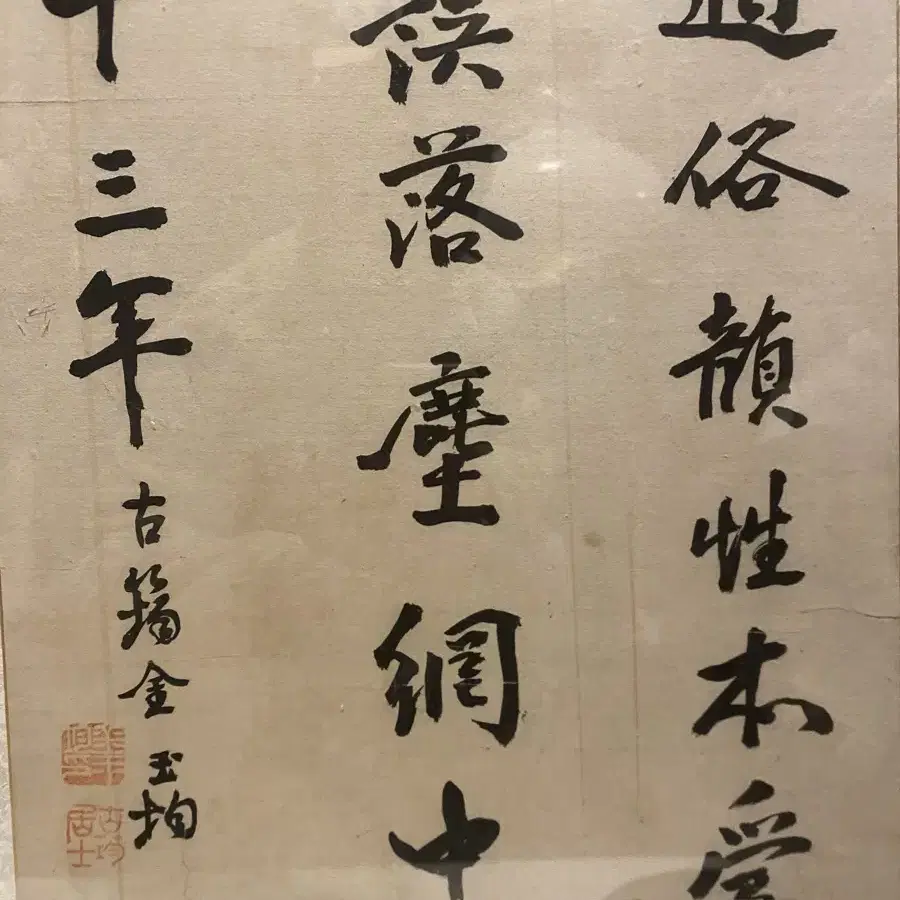 適俗韻性本愛
誤落塵網中
十三年
古筠金玉均
古筠居士